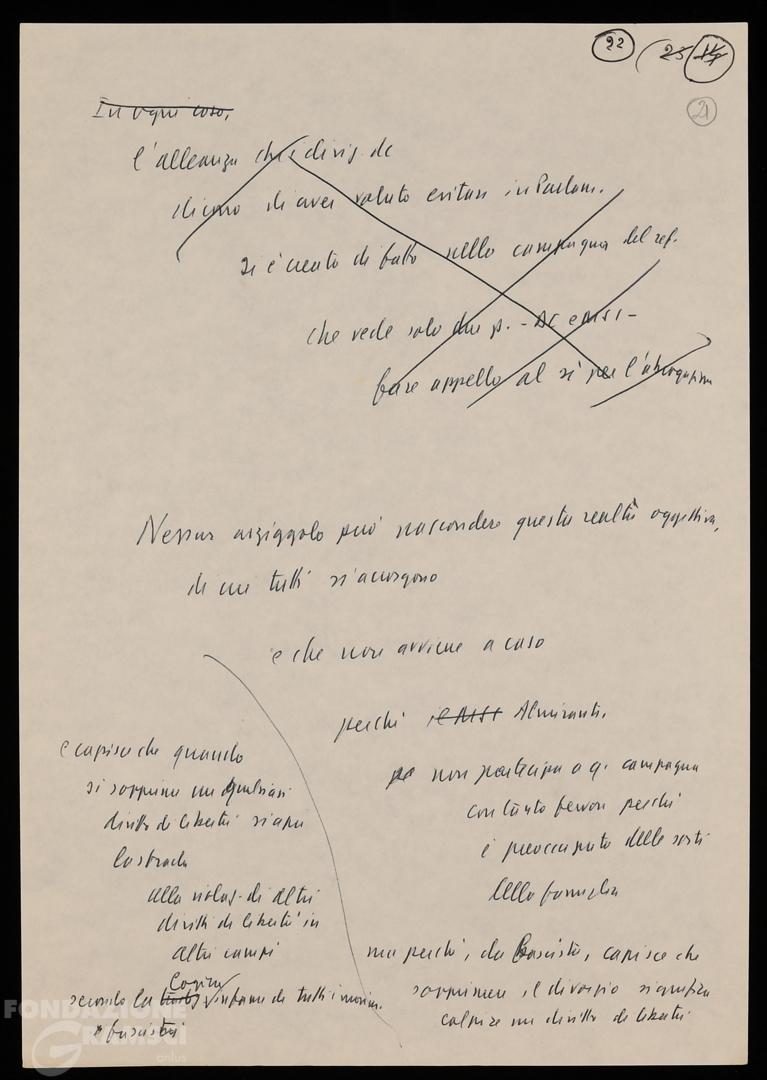 22 23 14
21
In ogni caso,
l'alleanza che i dirig. dc
dicono di aver voluto evitare in Parlam.
si è creata di fatto nella campagna del ref.
che vede solo due p. - DC e MSI -
fare appello al sì per l'abrogazione
Nessun arzigogolo può nascondere questa realtà oggettiva,
di cui tutti s'accorgono
e che non avviene a caso
perché il MSI Almirante,
non partecipa a q. campagna
con tanto fervore perché
è preoccupato delle sorti
della famiglia
ma perché, da fascista, capisce che
sopprimere il divorzio significa
colpire un diritto di libertà
e capisce che quando
si sopprime un qualsiasi
diritto di libertà si apre
la strada
alla violaz. di altri
diritti di libertà in
altri campi
logica
secondo la infame di tutti i movim.
fascisti
FONDAZIONE
GRAMSCI
onlus